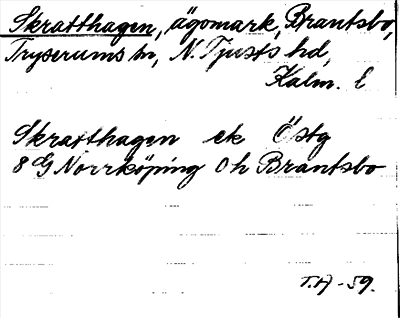 Skratthagen, ägomark, Brantsbo,
Tryserums sn, N. Tjusts hd,
Kalm. E
Skratthagen ek Östg
8 G Norrköping 0 h Brantsbo
T.A -59.